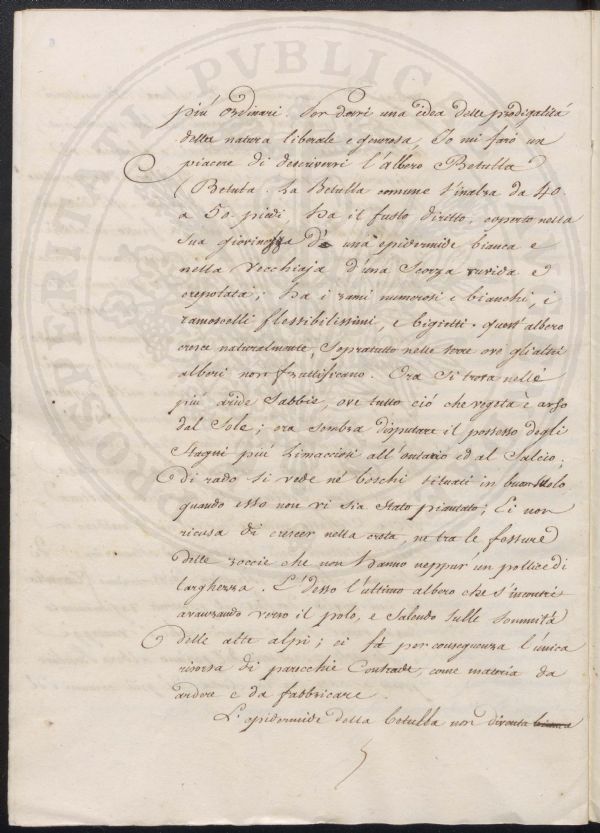 PROSPERITATI PVBLICAE
più ordinari. Per darvi una idea delle prodigalitá
della natura liberale e generosa, Io mi farò un
piacere di descrivervi l'albero Betulla
(Betula. La Betulla comune s'inalza da 40.
a 50 piedi, ha il fusto diritto, coperto nella
sua giovinezza d' una epidermide bianca e
nella vecchiaja d'una scorza ruvida e
crepolata; ha i rami numerosi e bianchi, i
ramoscelli flessibilissimi, e bigietti. quest'albero
cresce naturalmente, sopratutto nelle terre ove gli altri
alberi non fruttificano. Ora si trova nelle
più aride sabbie, ove tutto ció che vegeta è arso
dal Sole; ora sembra disputare il possesso degli
stagni più limacciosi all'ontano ed al Salcio;
di rado si vede né boschi situati in buon suolo
quando esso non vi sia stato piantato; Ei non
ricusa di crescer nella creta, ne tra le fessure
delle roccie che non hanno neppur un pollice di
larghezza. È desso l'ultimo albero che s'incontri
avanzando verso il polo, e salendo sulle sommità
delle alte alpi; ei fà per conseguenza l'única
risorsa di parecchie Contrade, come materia da
ardere e da fabbricare.
L'epidermide della betulla non diventa bianca